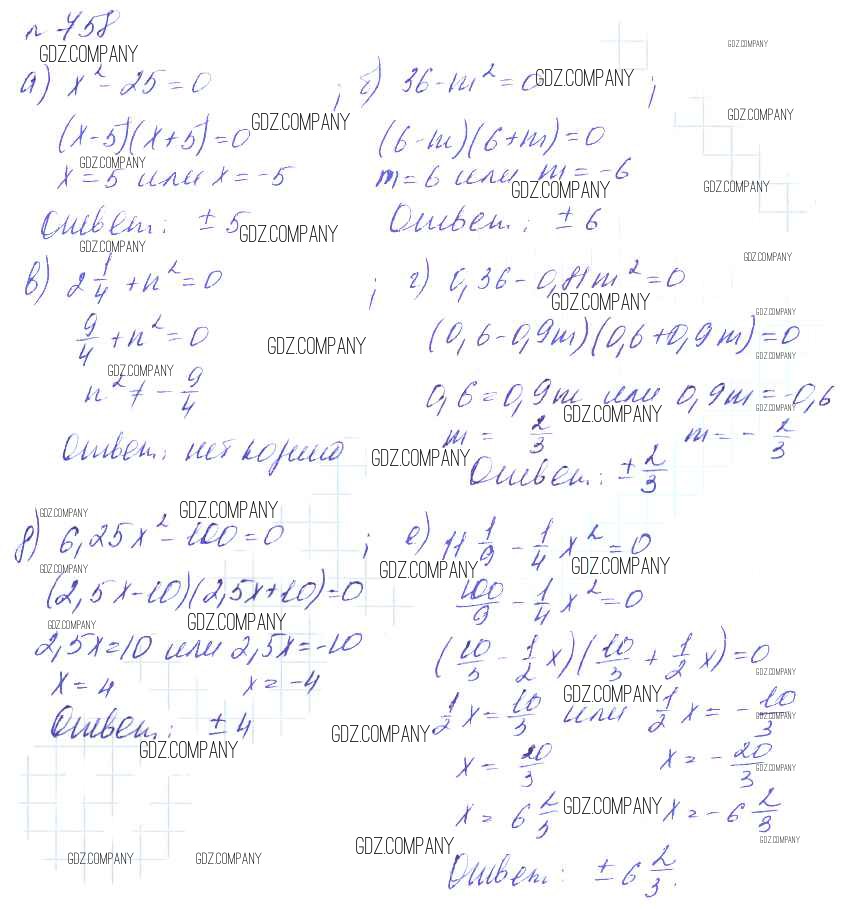 № 758
GDZ.COMPANY
GDZ.COMPANY
а) x² - 25 = 0 ; б) 36 - m² = 0 ;
GDZ.COMPANY
GDZ.COMPANY
GDZ.COMPANY
(x-5)(x+5) = 0 (6-m)(6+m) = 0
GDZ.COMPANY
x = 5 или x = -5 m = 6 или m = -6
GDZ.COMPANY
GDZ.COMPANY
Ответ: ± 5 Ответ: ± 6
GDZ.COMPANY
GDZ.COMPANY
GDZ.COMPANY
в) 2 1/4 + n² = 0 ; г) 0,36 - 0,81m² = 0
GDZ.COMPANY
GDZ.COMPANY
9/4 + n² = 0 (0,6-0,9m)(0,6+0,9m) = 0
GDZ.COMPANY
GDZ.COMPANY
GDZ.COMPANY
n² ≠ - 9/4 0,6 = 0,9m или 0,9m = -0,6
GDZ.COMPANY
GDZ.COMPANY
m = 2/3 m = - 2/3
Ответ: нет корней
GDZ.COMPANY
Ответ: ± 2/3
GDZ.COMPANY
GDZ.COMPANY
д) 6,25x² - 100 = 0 ; е) 11 1/9 - 1/4 x² = 0
GDZ.COMPANY
GDZ.COMPANY
GDZ.COMPANY
(2,5x-10)(2,5x+10) = 0 100/9 - 1/4 x² = 0
GDZ.COMPANY
GDZ.COMPANY
2,5x = 10 или 2,5x = -10 (10/3 - 1/2 x)(10/3 + 1/2 x) = 0
GDZ.COMPANY
x = 4 x = -4
GDZ.COMPANY
Ответ: ± 4 1/2 x = 10/3 или 1/2 x = - 10/3
GDZ.COMPANY
GDZ.COMPANY
GDZ.COMPANY
x = 20/3 x = - 20/3
GDZ.COMPANY
x = 6 2/3 x = - 6 2/3
GDZ.COMPANY
GDZ.COMPANY
GDZ.COMPANY
GDZ.COMPANY
GDZ.COMPANY
Ответ: ± 6 2/3.